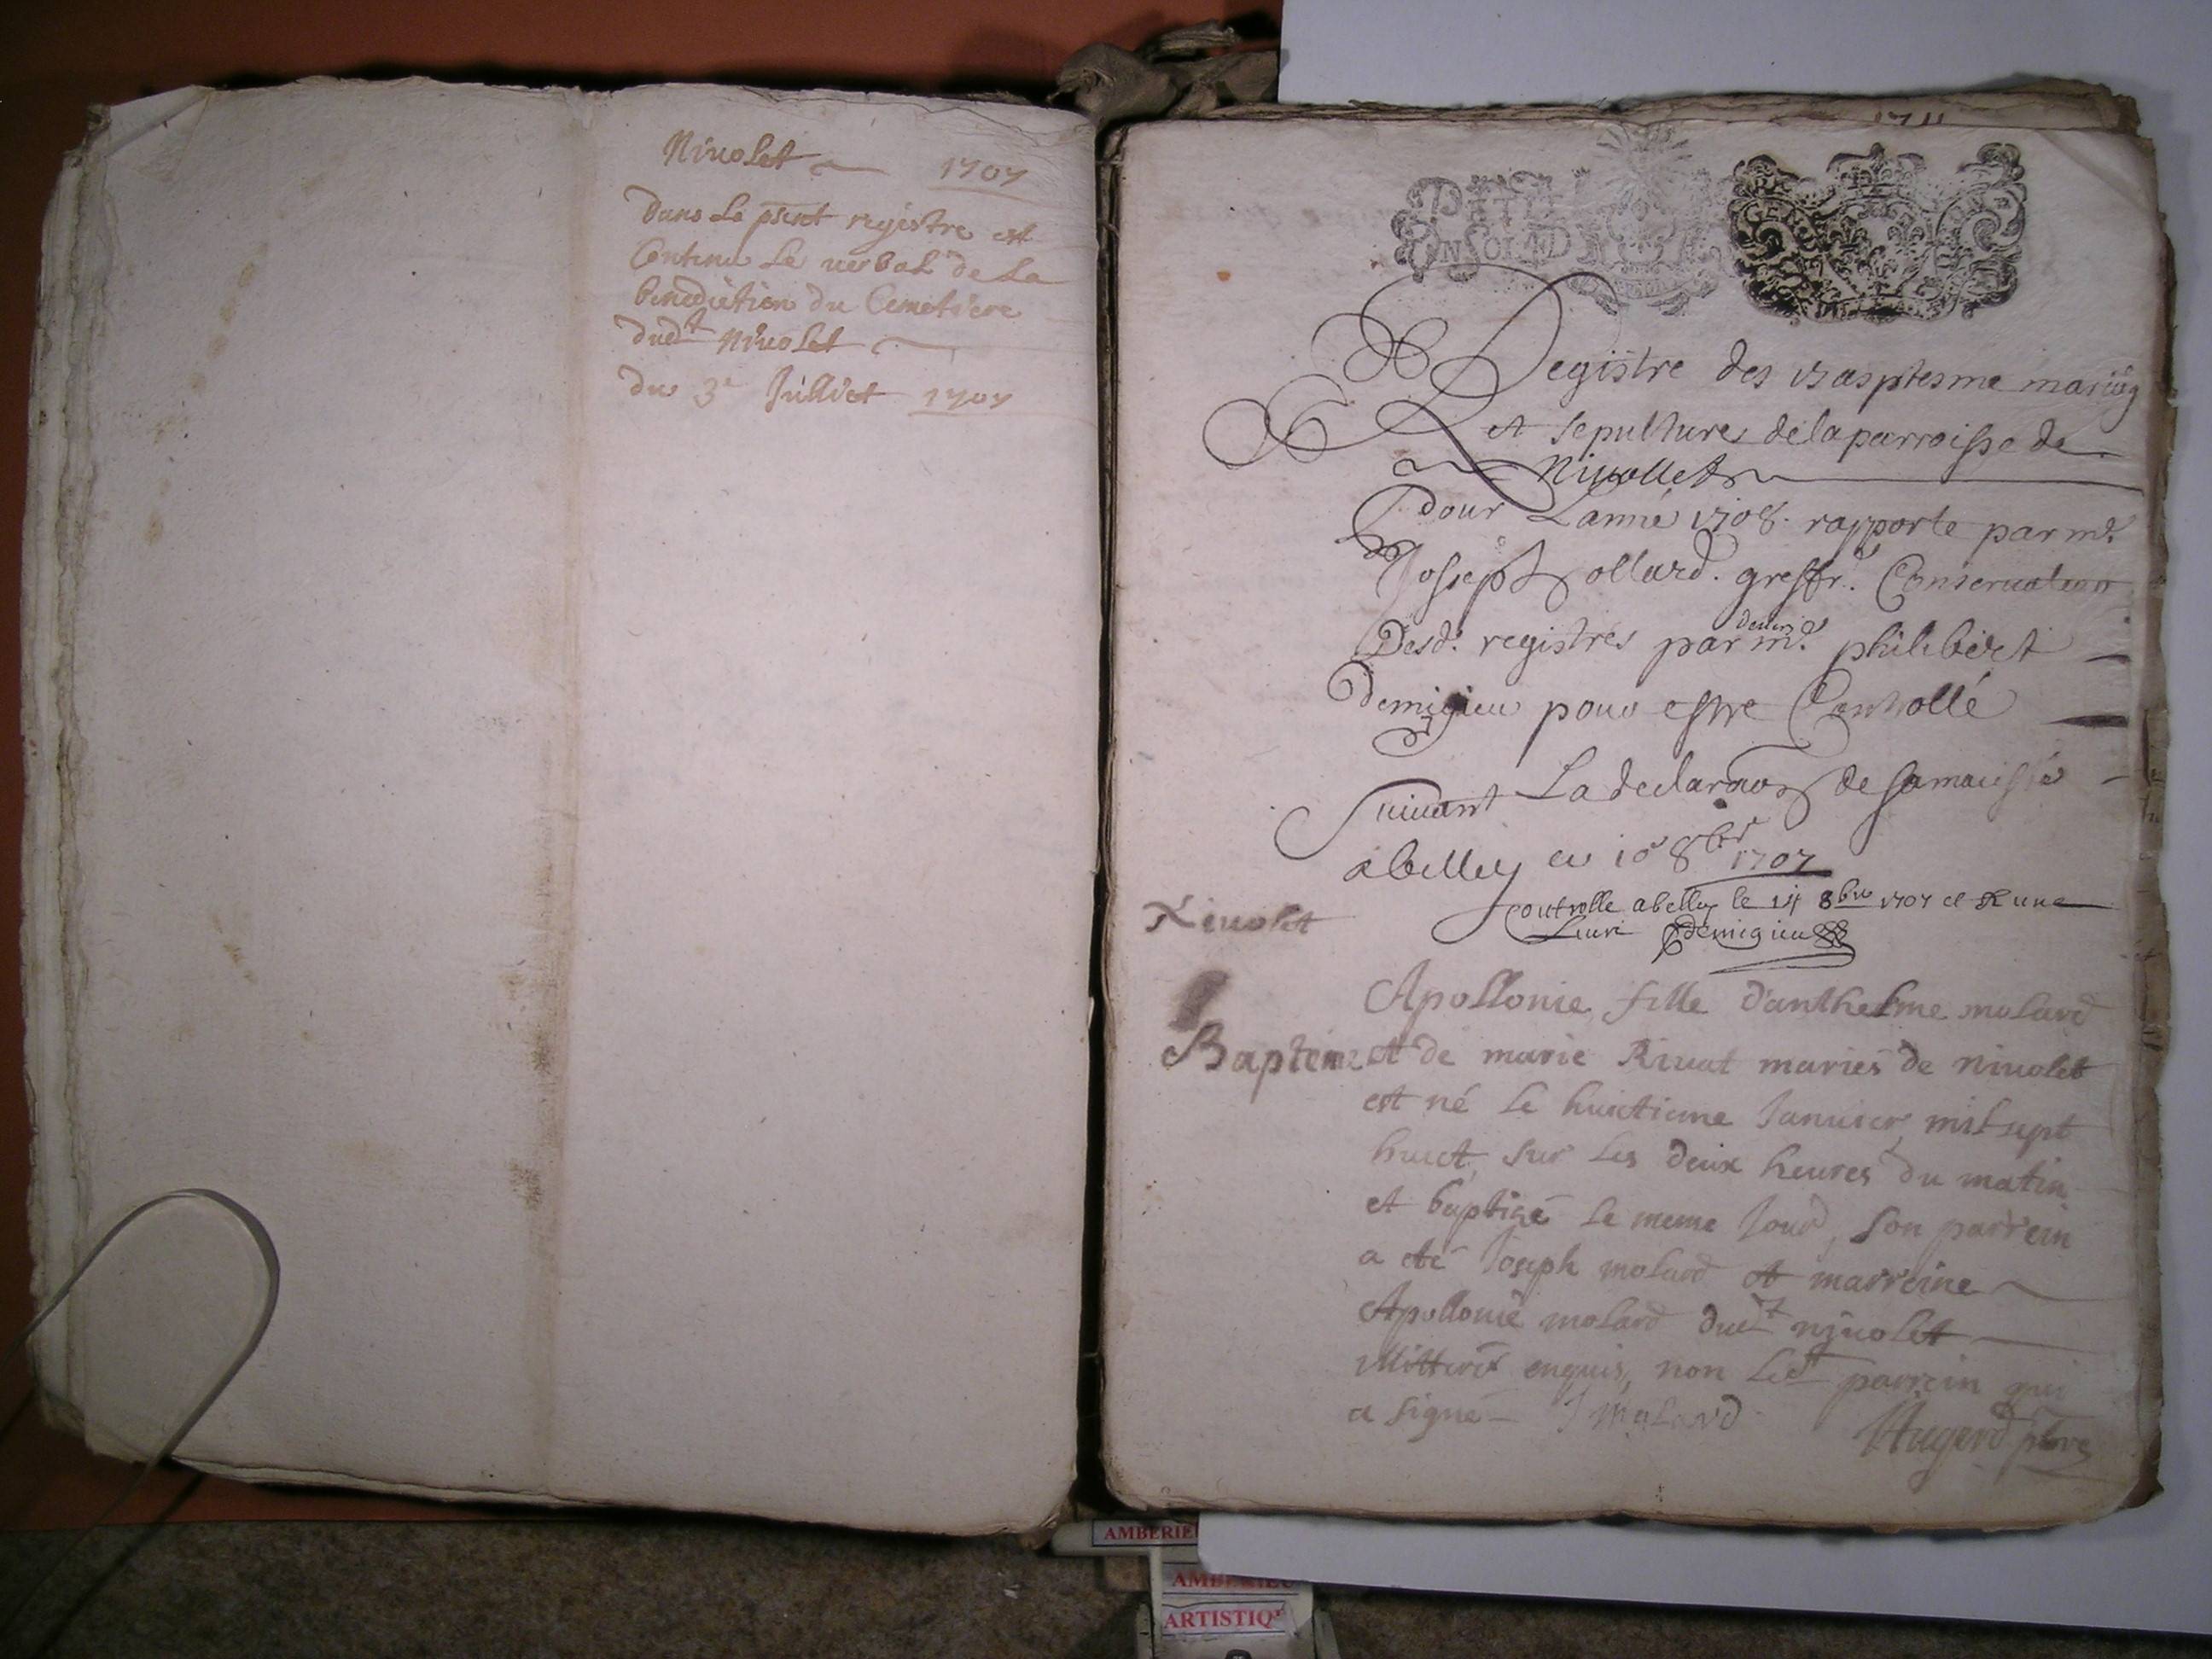 Nivolet 1707
Dans Le pñt registre est
Contenu Le verbal de La
benediction du Cemetiere
dud.t Nivolet
du 3e Juilliet 1707
1711
PETIT
UN SOL 4 D
GEN
Registre des Basptesme mariag
et sepulture de la parroisse de
Nivollet
pour Lanné 1708. rapporte par me
Josept ollard. greffr. Conservateur
Desd. registres par devers me philibert
demigieu pour estre Controllé
suivant La declaraon de sa maiesté
a belley ce 10 8bre 1707
Controlle a belley le 14 8bre 1707 et R une
Livre Demigieu
Nivolet
Baptême
Apollonie fille d'anthelme molard
et de marie Rivat mariés de nivolet
est né le huictieme Janvier mil sept
huict, sur les deux heures du matin
et baptizé le meme Jour, son parrein
a été Joseph molard et marreine
Apollonie molard dud.t nivolet
illitteré enquis, non led.t parrein qui
a signé J molard
Augerd ptre
AMBERIE
AMBERIEU
ARTISTIQ